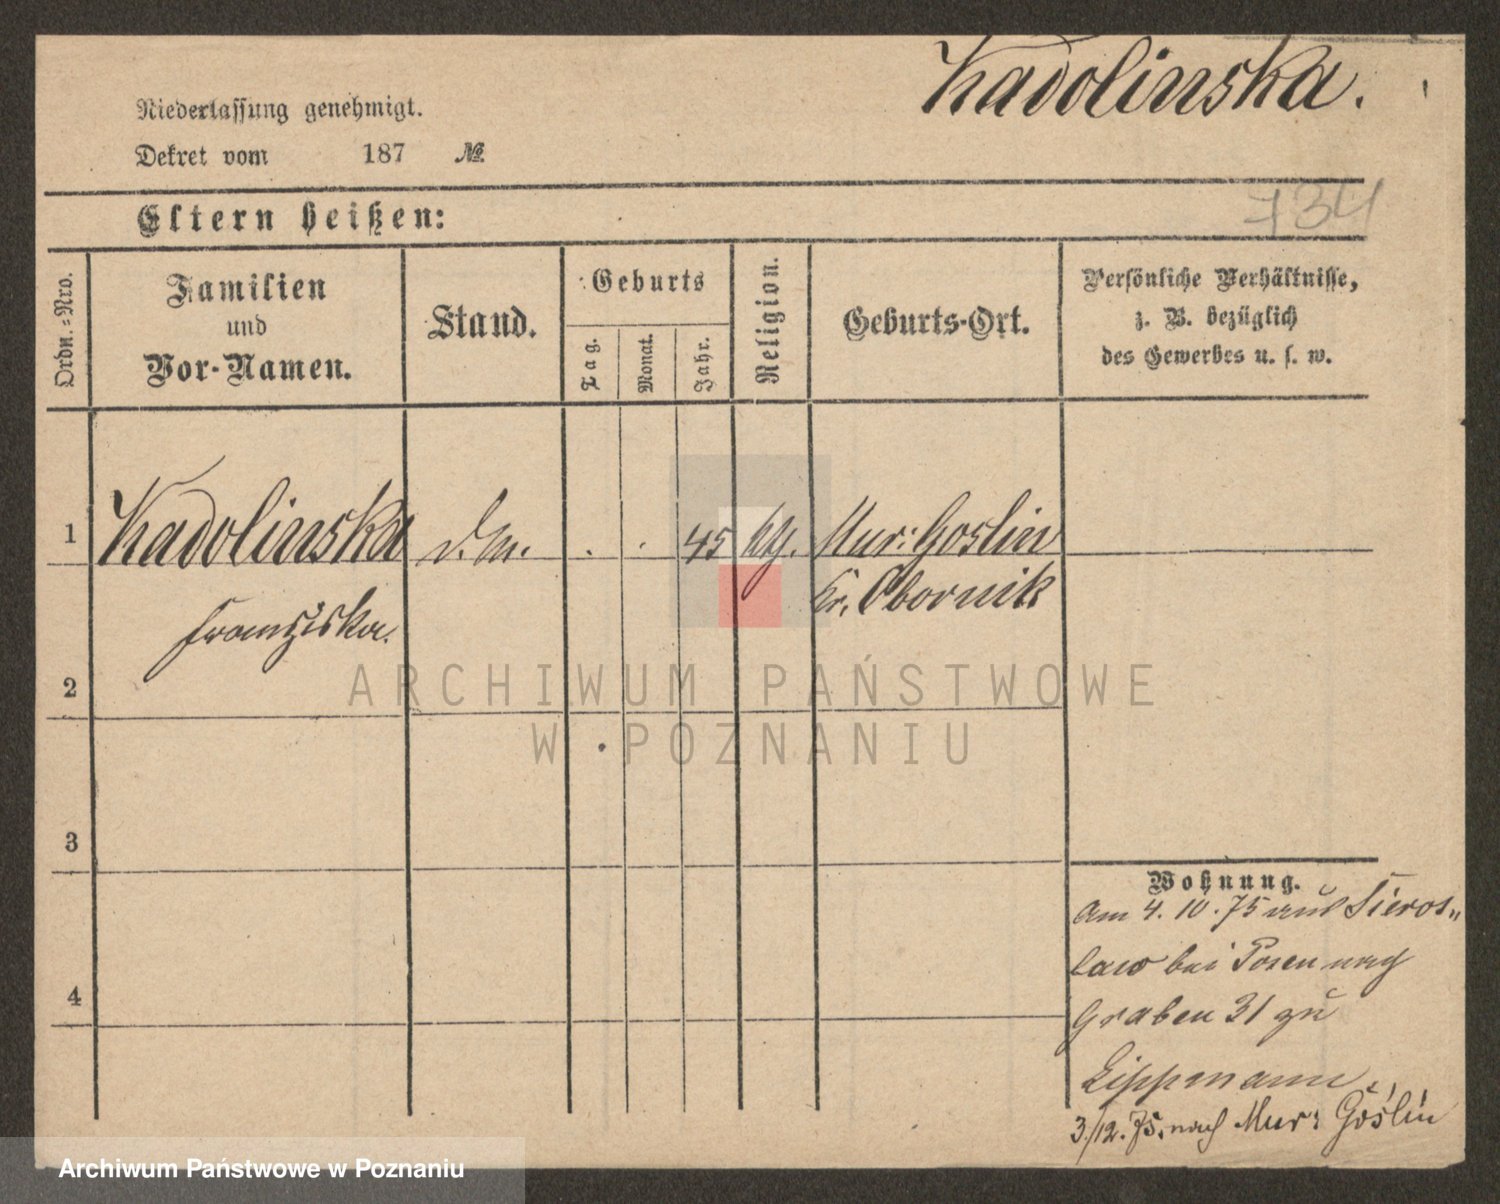 Kadolinska.
Niederlassung genehmigt.
Dekret vom 187 №
Eltern heißen:
734
Ordn.-Nro.
Familien
und
Vor-Namen.
Stand.
Geburts
Tag.
Monat.
Jahr.
Religion.
Geburts-Ort.
Persönliche Verhältnisse,
z. B. bezüglich
des Gewerbes u. s. w.
1 Kadolinska d. M. . . 45 kth. Mur: Goslin
Kr. Obornik
Franziska.
2
ARCHIWUM PAŃSTWOWE
W POZNANIU
3
Wohnung.
Am 4. 10. 75 aus Sieros„
law bei Posen nach
4
Graben 31 zu
Lippmann.
3./12. 75. nach Mur: Goślin
Archiwum Państwowe w Poznaniu